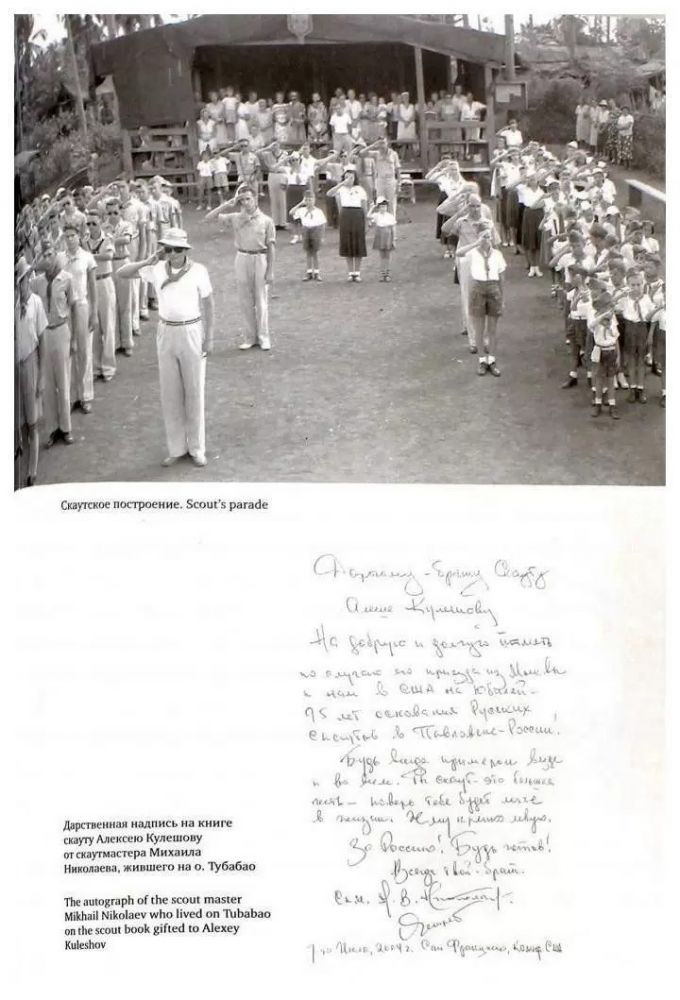 Скаутское построение. Scout's parade
Дорогому - брату Скауту
Алеше Кулешову
На добрую и долгую память
по случаю его приезда из Москвы
к нам в США на Юбилей -
95 лет основания Русских
Скаутов в Павловске-России!
Будь всегда примером везде
и во всем. Ты скаут - это большая
честь - поверь тебе будет легче
в жизни. Жму крепко левую.
За Россию! Будь готов!
Всегда твой - брат.
Скм. В.
2004 г. Сан Франциско, Калиф. США
Дарственная надпись на книге
скауту Алексею Кулешову
от скаутмастера Михаила
Николаева, жившего на о. Тубабао
The autograph of the scout master
Mikhail Nikolaev who lived on Tubabao
on the scout book gifted to Alexey
Kuleshov